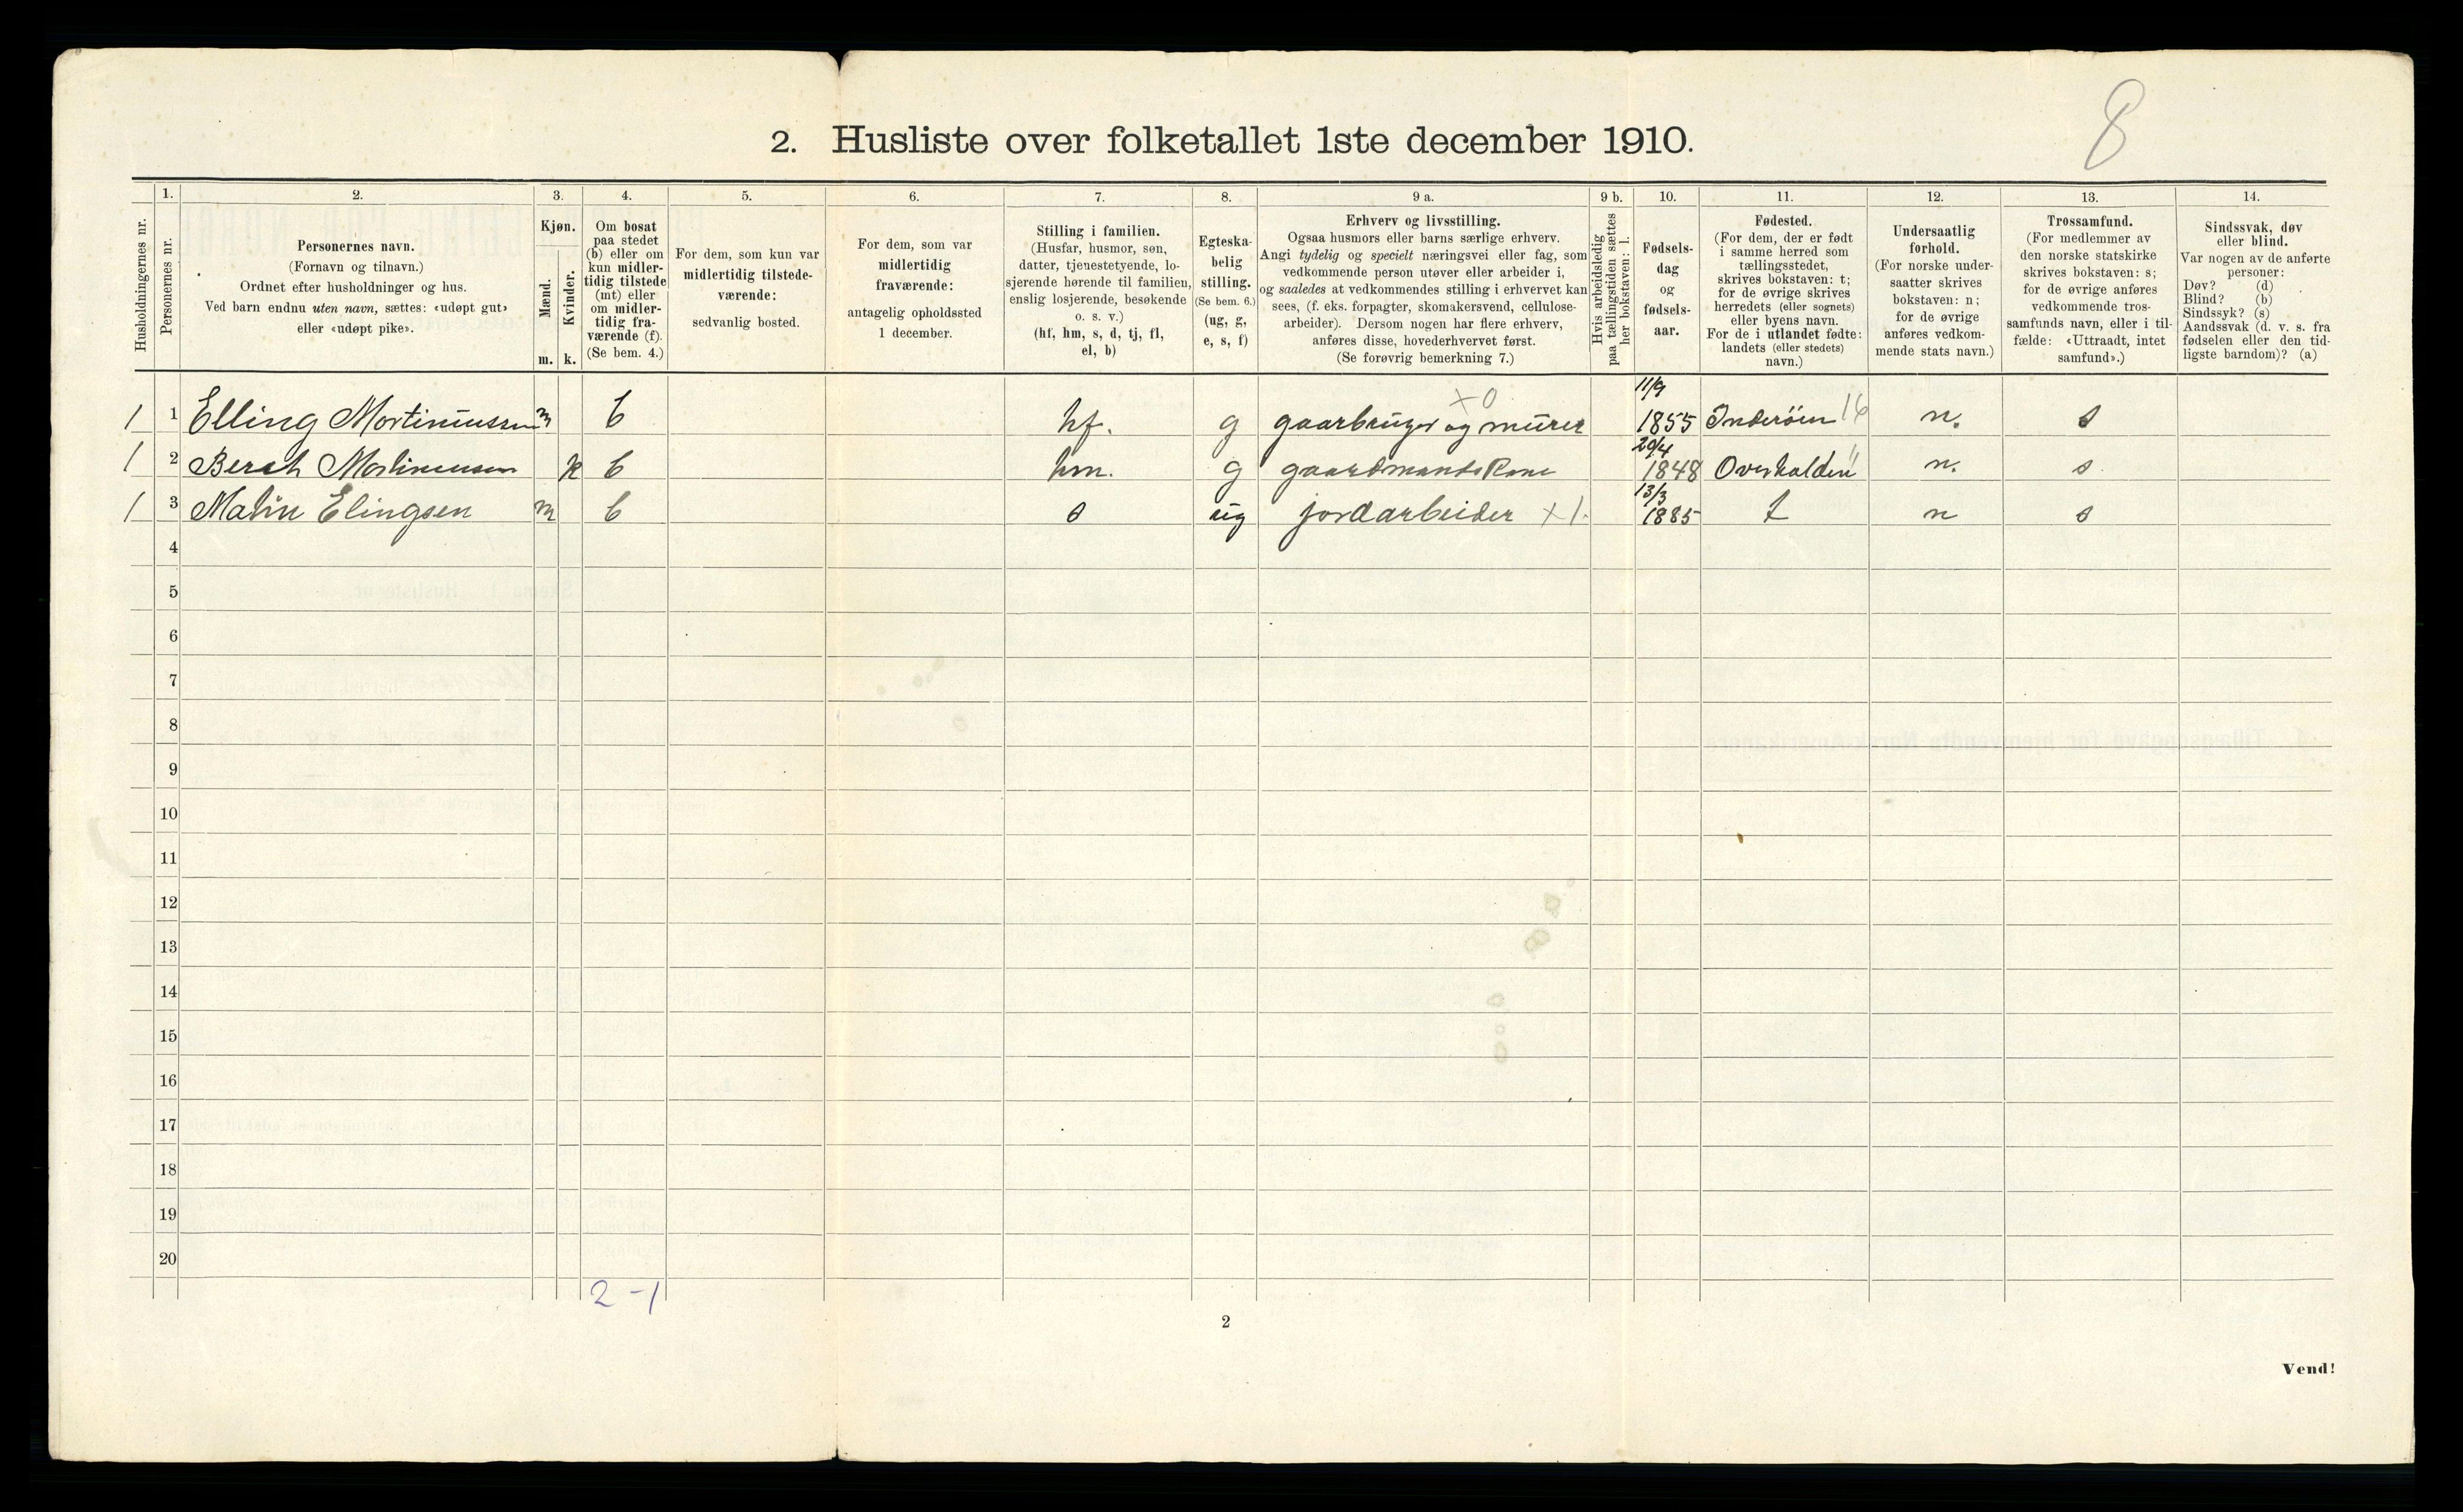 8
2. Husliste over folketallet 1ste december 1910.
Husholdningernes nr.
1.
Personernes nr.
2.
Personernes navn.
(Fornavn og tilnavn.)
Ordnet efter husholdninger og hus.
Ved barn endnu uten navn, sættes: «udøpt gut»
eller «udøpt pike».
3.
Kjøn.
Mænd.
m.
Kvinder.
k.
4.
Om bosat
paa stedet
(b) eller om
kun midler-
tidig tilstede
(mt) eller
om midler-
tidig fra-
værende (f).
(Se bem. 4.)
5.
For dem, som kun var
midlertidig tilstede-
værende:
sedvanlig bosted.
6.
For dem, som var
midlertidig
fraværende:
antagelig opholdssted
1 december.
7.
Stilling i familien.
(Husfar, husmor, søn,
datter, tjenestetyende, lo-
sjerende hørende til familien,
enslig losjerende, besøkende
o. s. v.)
(hf, hm, s, d, tj, fl,
el, b)
8.
Egteska-
belig
stilling.
(Se bem. 6.)
(ug, g,
e, s, f)
9 a.
Erhverv og livsstilling.
Ogsaa husmors eller barns særlige erhverv.
Angi tydelig og specielt næringsvei eller fag, som
vedkommende person utøver eller arbeider i,
og saaledes at vedkommendes stilling i erhvervet kan
sees, (f. eks. forpagter, skomakersvend, cellulose-
arbeider). Dersom nogen har flere erhverv,
anføres disse, hovederhvervet først.
(Se forøvrig bemerkning 7.)
9 b.
Hvis arbeidsledig
paa tællingstiden sættes
her bokstaven: l.
10.
Fødsels-
dag
og
fødsels-
aar.
11.
Fødested.
(For dem, der er født
i samme herred som
tællingsstedet,
skrives bokstaven: t;
for de øvrige skrives
herredets (eller sognets)
eller byens navn.
For de i utlandet fødte:
landets (eller stedets)
navn.)
12.
Undersaatlig
forhold.
(For norske under-
saatter skrives
bokstaven: n;
for de øvrige
anføres vedkom-
mende stats navn.)
13.
Trossamfund.
(For medlemmer av
den norske statskirke
skrives bokstaven: s;
for de øvrige anføres
vedkommende tros-
samfunds navn, eller i til-
fælde: «Uttraadt, intet
samfund».)
14.
Sindssvak, døv
eller blind.
Var nogen av de anførte
personer:
Døv? (d)
Blind? (b)
Sindssyk? (s)
Aandssvak (d. v. s. fra
fødselen eller den tid-
ligste barndom)? (a)
1 1 Elling Mortinussen m b hf. g gaarbruger og murer x0 11/9 1855 Inderøien 16 n. s
1 2 Mortinusen k b hm. g gaardmandskone 20/4 1848 Overhalden n. s.
1 3 Elingsen m b s ug jordarbeider x1. 13/3 1885 t n s
4
5
6
7
8
9
10
11
12
13
14
15
16
17
18
19
20
2 - 1
2
Vend!